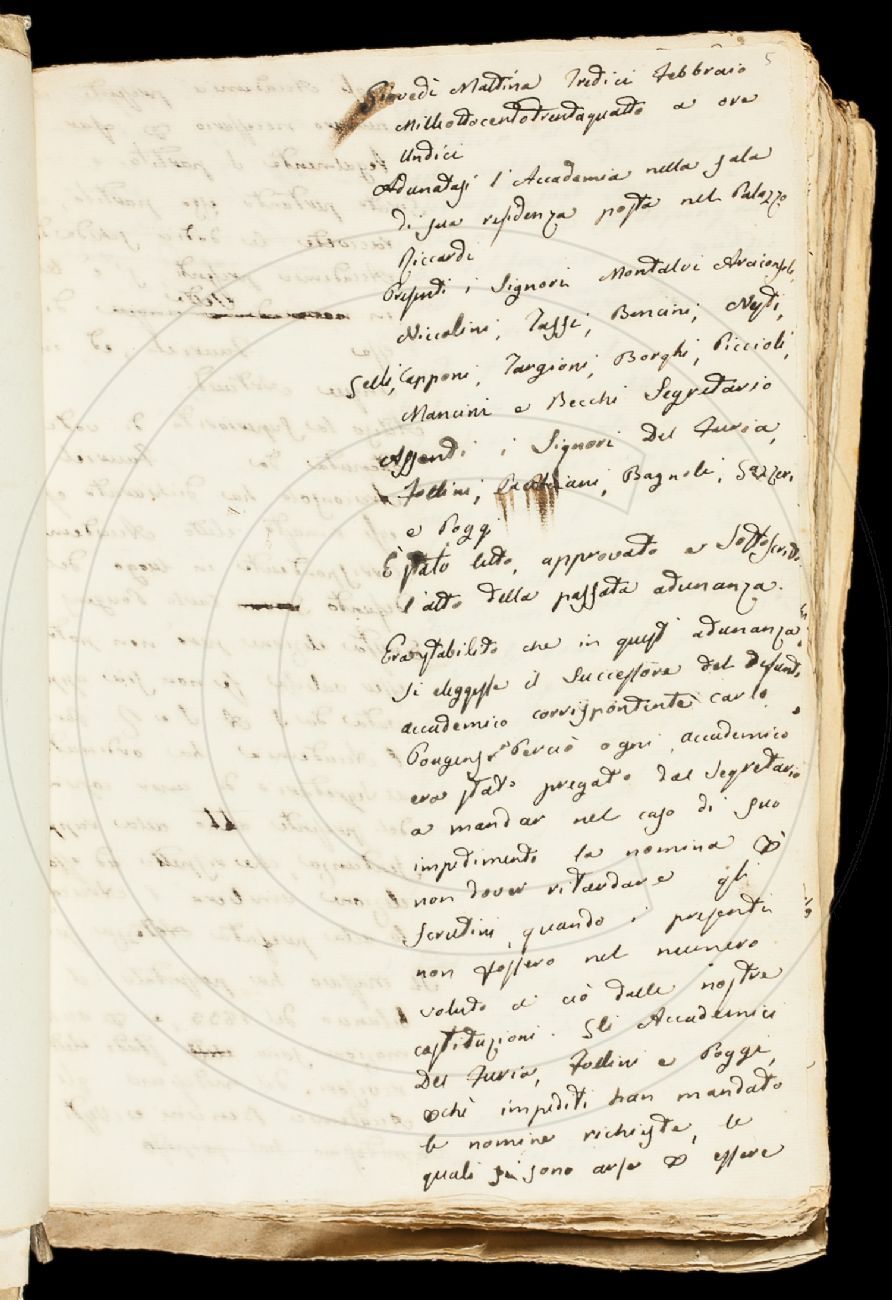 5
Giovedì Mattina Tredici Febbraio
Milleottocentotrentaquattro a ore
Undici
Adunatasi l'Accademia nella sala
di sua residenza posta nel Palazzo
Riccardi
Presenti i Signori Montalvi Arciconsolo,
Niccolini, Tassi, Bencini, Nesti,
Gelli, Capponi, Targioni, Borghi, Piccioli,
Mancini e Becchi Segretario
Assenti i Signori Del Furia,
Follini, Bagnoli, Gazzeri,
e Poggi
È stato letto, approvato e Sottoscritto
l'atto della passata adunanza.
Era stabilito che in questa adunanza
si eleggesse il Successore del Defunto
accademico corrispondente Carlo
Pougens. Perciò ogni accademico
era stato pregato dal Segretario
a mandar nel caso di suo
impedimento la nomina p
non dover ritardare gli
scrutini, quando i presenti
non fossero nel numero
voluto a ciò dalle nostre
costituzioni. Gli Accademici
Del Furia, Follini e Poggi,
pchè impediti han mandato
le nomine richieste, le
quali si sono arse p essere